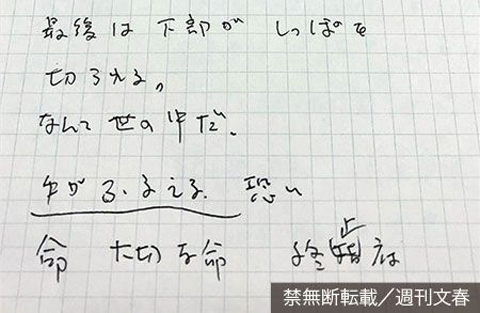 最後は下部がしっぽを
切られる。
なんて世の中だ、
手がふるえる、恐い
命 大切な命 終止府
禁無断転載／週刊文春